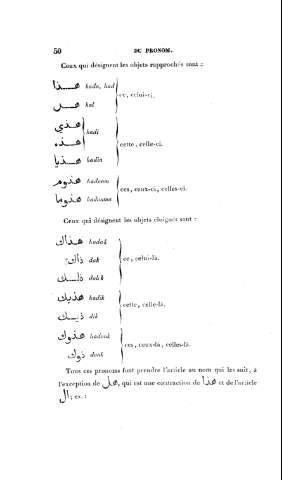 50 DU PRONOM.
Ceux qui désignent les objets rapprochés sont :
هـــذا hada, had
هـــل hal
ce, celui-ci.
هـذي
هـــذه
hadi
هـــذيا hadia
cette, celle-ci.
هذوم hadoum
هذوما hadouma
ces, ceux-ci, celles-ci.
Ceux qui désignent les objets éloignés sont :
هـذاك hadak
ذاك dak
ذلـــك dalik
ce, celui-là.
هذيك hadik
ذيـــك dik
cette, celle-là.
هذوك hadouk
ذوك douk
ces, ceux-là, celles-là.
Tous ces pronoms font prendre l'article au nom qui les suit, à
l'exception de هل, qui est une contraction de هذا et de l'article
ال; ex. :